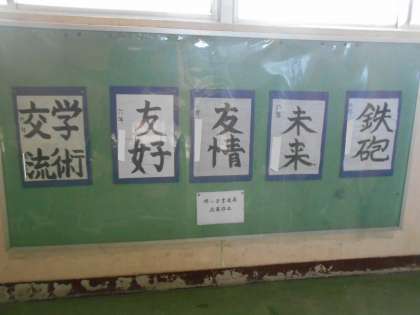 学術
交流
友好
友情
未来
鉄砲